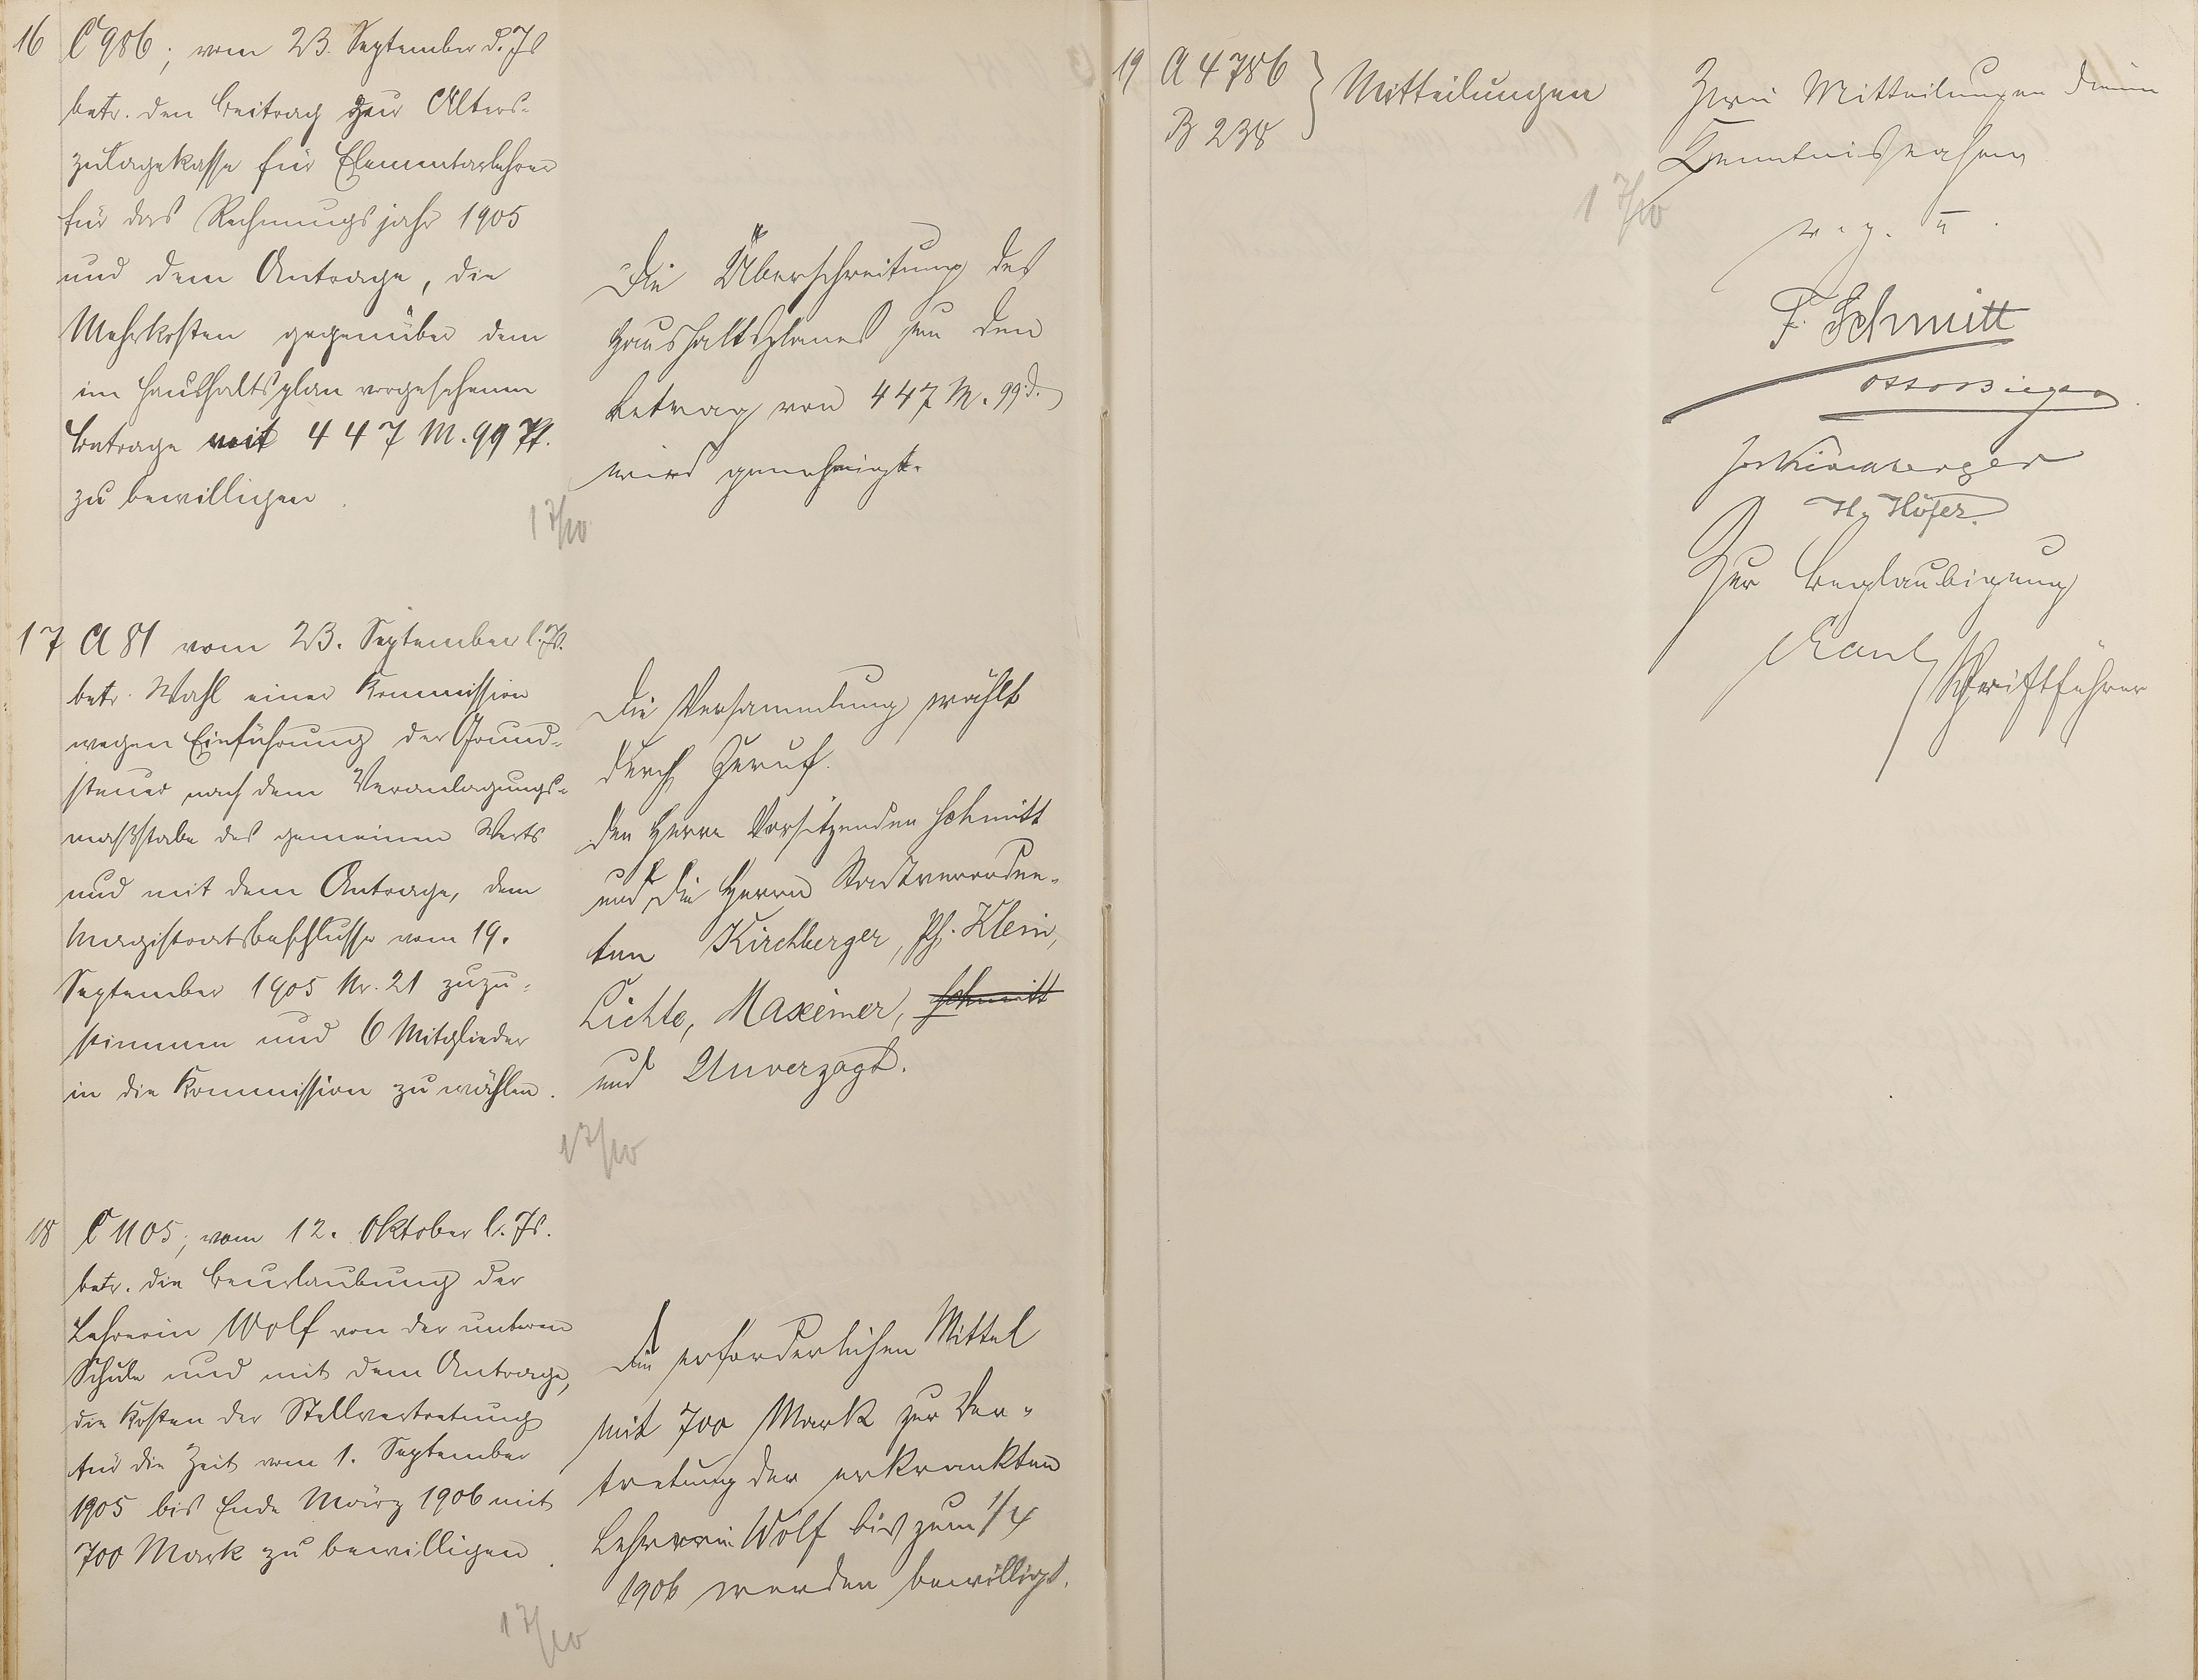 16 C 986; vom 23. September d. Js
betr. den Beitrag zur Alters-
zulagekasse für Elementarlehrer
für das Rechnungsjahr 1905
und dem Antrage, die
Mehrkosten gegenüber dem
im Haushaltsplan vorgesehenen
Betrage mit 447 M. 99 Pf.
zu bewilligen.
Die Überschreitung des
Haushaltsplanes um den
Betrag von 447 M. 99 d.
wird genehmigt.
17/10
17 A 81 vom 23. September l. Js.
betr. Wahl einer Kommission
wegen Einführung der Grund-
steuer nach dem Veranlagungs-
maßstabe des gemeinen Werts
und mit dem Antrage, dem
Magistratsbeschlusse vom 19.
September 1905 Nr. 21 zuzu-
stimmen und 6 Mitglieder
in die Kommission zu wählen.
Die Versammlung wählt
durch Zuruf.
den Herrn Vorsitzenden Schmitt
und die Herren Stadtverordne-
ten Kirchberger, Ph. Klein,
Lichte, Maxeiner, Schmitt
und Unverzagt.
17/10
18 C 1105; vom 12. Oktober l. Js.
betr. die Beurlaubung der
Lehrerin Wolf von der unteren
Schule und mit dem Antrage,
die Kosten der Stellvertretung
für die Zeit vom 1. September
1905 bis Ende März 1906 mit
700 Mark zu bewilligen.
Die erforderlichen Mittel
mit 700 Mark zur Ver-
tretung der erkrankten
Lehrerin Wolf bis zum 1/4
1906 werden bewilligt.
17/10
19 A 4786
B 238 } Mitteilungen
Zwei Mitteilungen dienen
Kenntnisnahme
17/10
v. g. u.
F. Schmitt
Jos Kirchberger
H. Höfer.
Zur Beglaubigung
Schriftführer